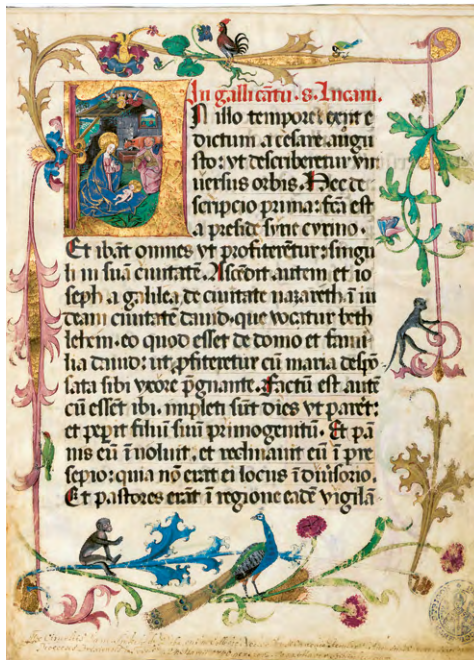 In gallicātu. s. Lucam.
N illo tempore: exiit e
dictum a cesare augu
sto: vt describeretur vni
uersus orbis. Hec de
scripcio prima: fc̄a est
a preside syrie cyrino.
Et ibāt omnes vt profiterētur: singu
li in suā ciuitatē. Ascēdit autem et io
seph a galilea, de ciuitate nazareth ī iu
deam ciuitatē dauid. que vocatur beth
lehem. eo quod esset de domo et fami
lia dauid: ut ꝓfiteretur cū maria despō
sata sibi vxore p̄gnante. Factū est autē
cū essēt ibi. impleti sūt dies vt parēt:
et peperit filiū suū primogenitū. Et pā
nis eū īuoluit. et reclinauit eū ī pre
sepio: quia nō erāt ei locus ī diuisorio.
Et pastores erāt ī regione eadē vigilā